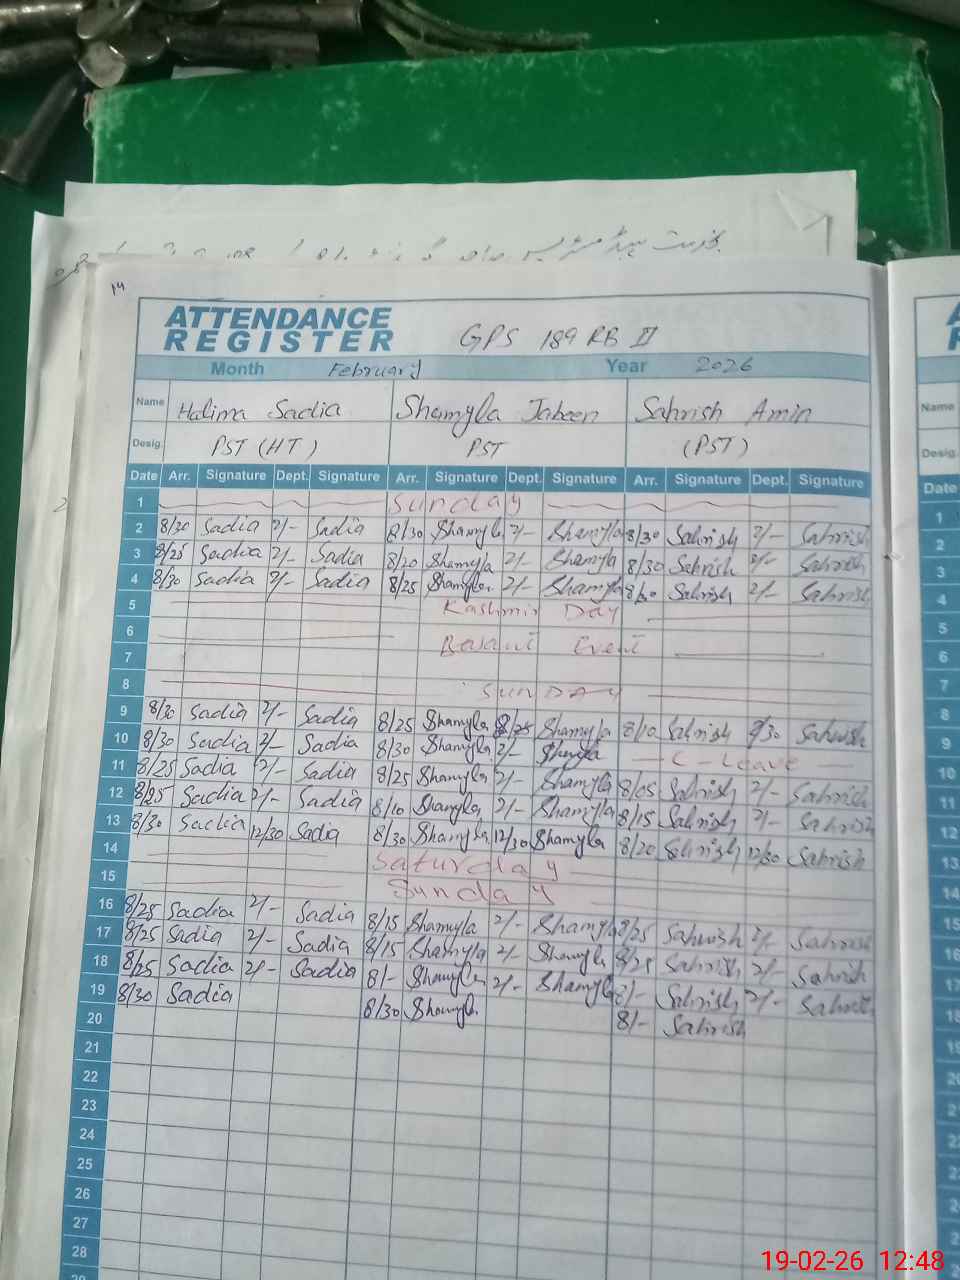 14
ATTENDANCE
REGISTER
GPS 189 RB II
Month February Year 2026
Name Halima Sadia Shamyla Jabeen Sahrish Amin
Desig. PST (HT) PST (PST)
Date Arr. Signature Dept. Signature Arr. Signature Dept. Signature Arr. Signature Dept. Signature
1 Sunday
2 8/30 Sadia 2/- Sadia 8/30 Shamyla 2/- Shamyla 8/30 Sahrish 2/- Sahrish
3 8/25 Sadia 2/- Sadia 8/20 Shamyla 2/- Shamyla 8/30 Sahrish 2/- Sahrish
4 8/30 Sadia 2/- Sadia 8/25 Shamyla 2/- Shamyla Sahrish 2/- Sahrish
5 Kashmir Day
6 Event
7
8 SUNDAY
9 8/30 Sadia 2/- Sadia 8/25 Shamyla Shamyla 8/10 Sahrish Sahrish
10 8/30 Sadia 2/- Sadia 8/30 Shamyla 2/- C-Leave
11 8/25 Sadia 2/- Sadia 8/25 Shamyla 2/- Shamyla 8/05 Sahrish 2/- Sahrish
12 8/25 Sadia 2/- Sadia 8/10 Shamyla 2/- Shamyla 8/15 Sahrish 2/- Sahrish
13 8/30 Sadia 12/30 Sadia 8/30 Shamyla 12/30 Shamyla 8/20 Sahrish 12/30 Sahrish
14 Saturday
15 Sunday
16 8/25 Sadia 2/- Sadia 8/15 Shamyla 2/- Shamyla 8/25 Sahrish 2/- Sahrish
17 8/25 Sadia 2/- Sadia 8/15 Shamyla 2/- Shamyla 8/25 Sahrish 2/- Sahrish
18 8/25 Sadia 2/- Sadia 8/- Shamyla 2/- Shamyla 8/- Sahrish 2/- Sahrish
19 8/30 Sadia 8/30 Shamyla 8/- Sahrish
20
21
22
23
24
25
26
27
28
Name
Desig.
Date
1
2
3
4
5
6
7
8
9
10
11
12
13
14
15
16
17
18
19-02-26 12:48